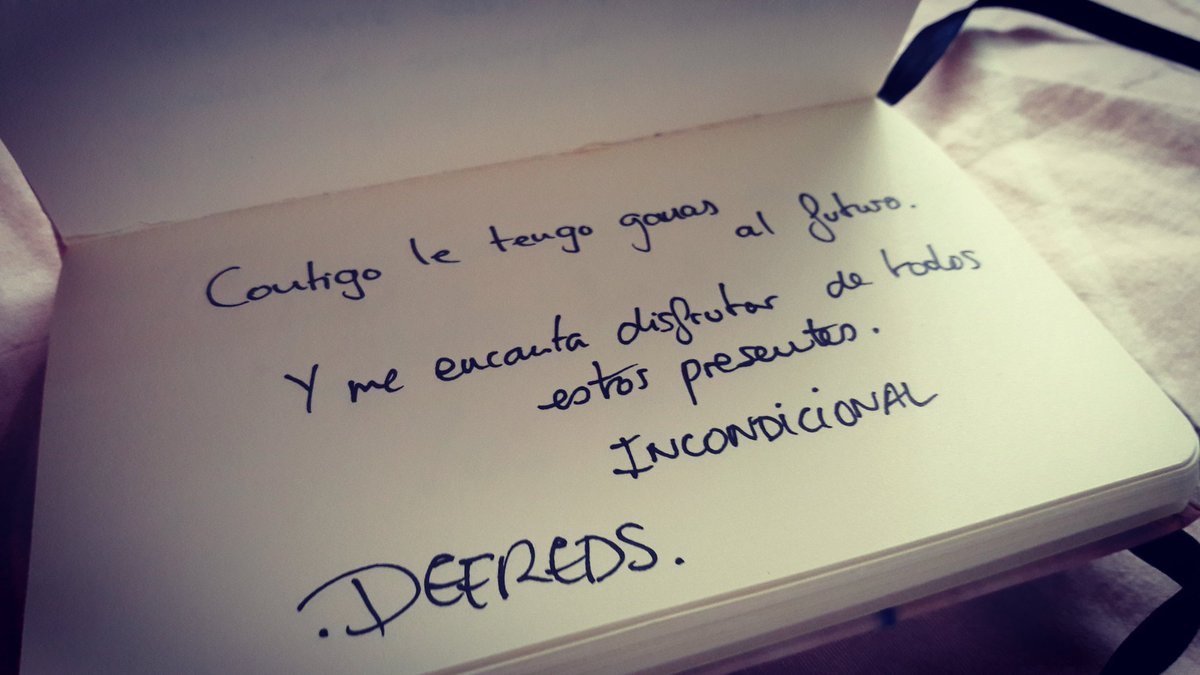 Contigo le tengo ganas al futuro.
Y me encanta disfrutar de todos
estos presentes.
INCONDICIONAL
.DEFREDS.